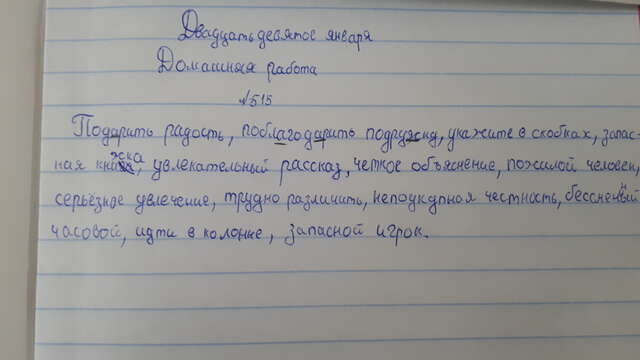 Двадцать девятое января
Домашняя работа
№515
Подарить радость, поблагодарить подружку, укажите в скобках, запас-
ная книжка, увлекательный рассказ, четкое объяснение, пожилой человек,
серьёзное увлечение, трудно различить, неподкупная честность, бессменный
часовой, идти в колонне, запасной игрок.